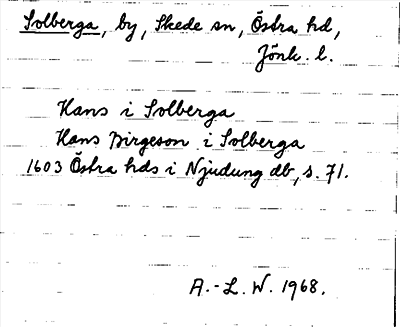 Solberga, by, Skede sn, Östra hd,
Jönk. l.
Hans i Solberga
Hans Birgeson i Solberga
1603 Östra hds i Njudung db, s. 71.
A.-L. W. 1968.